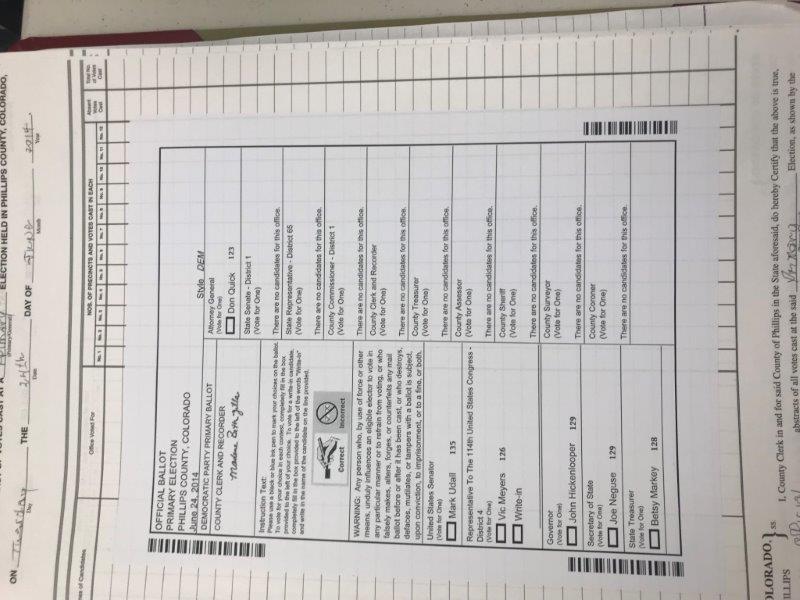 ELECTION HELD IN PHILLIPS COUNTY, COLORADO,
ON Tuesday THE 24th DAY OF June 2014
Day Date Month Year
Office Voted For
NOS. OF PRECINCTS AND VOTES CAST IN EACH
Absent Votes Cast
Total No. of Votes Cast
OFFICIAL BALLOT
PRIMARY ELECTION
PHILLIPS COUNTY, COLORADO
June 24, 2014 Style DEM
DEMOCRATIC PARTY PRIMARY BALLOT
COUNTY CLERK AND RECORDER
Instruction Text:
Please use a black or blue ink pen to mark your choices on the ballot.
To vote for your choice in each contest, completely fill in the box
provided to the left of your choice. To vote for a write-in candidate,
completely fill in the box provided to the left of the words "Write-in"
and write in the name of the candidate on the line provided.
Correct Incorrect
WARNING: Any person who, by use of force or other
means, unduly influences an eligible elector to vote in
any particular manner or to refrain from voting, or who
falsely makes, alters, forges, or counterfeits any mail
ballot before or after it has been cast, or who destroys,
defaces, mutilates, or tampers with a ballot is subject,
upon conviction, to imprisonment, or to a fine, or both.
United States Senator
(Vote for One)
Mark Udall 135
Representative To The 114th United States Congress -
District 4
(Vote for One)
Vic Meyers 126
Write-in
Governor
(Vote for One)
John Hickenlooper 129
Secretary of State
(Vote for One)
Joe Neguse 129
State Treasurer
(Vote for One)
Betsy Markey 128
Attorney General
(Vote for One)
Don Quick 123
State Senate - District 1
(Vote for One)
There are no candidates for this office.
State Representative - District 65
(Vote for One)
There are no candidates for this office.
County Commissioner - District 1
(Vote for One)
There are no candidates for this office.
County Clerk and Recorder
(Vote for One)
There are no candidates for this office.
County Treasurer
(Vote for One)
There are no candidates for this office.
County Assessor
(Vote for One)
There are no candidates for this office.
County Sheriff
(Vote for One)
There are no candidates for this office.
County Surveyor
(Vote for One)
There are no candidates for this office.
County Coroner
(Vote for One)
There are no candidates for this office.
SS
I, County Clerk in and for said County of Phillips in the State aforesaid, do hereby Certify that the above is true,
abstracts of all votes cast at the said Election, as shown by the